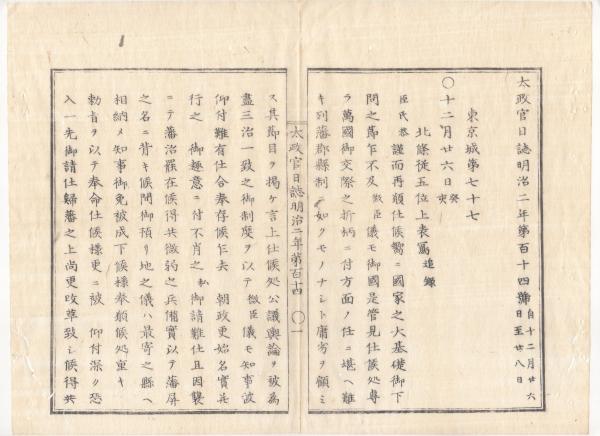 太政官日誌明治二年第百十四號 自十二月廿六日至廿八日
東京城第七十七
〇十二月廿六日癸亥
北條従五位上表寫 追録
臣氏恭謹而再願仕候嚮ニ國家之大基礎御下
問之節乍不及微臣儀モ御國是管見仕候処専
ラ萬國御交際之折柄ニ付方面ノ任ニ堪ヘ難
キ列藩郡縣制ニ如クモノナシト庸劣ヲ顧ミ
ス其節目ヲ掲ケ言上仕候処公議輿論ヲ被為
盡三治一致之御制度ヲ以テ微臣儀モ知事被
仰付難有仕合奉存候乍去 朝政更始名實共
行之 御趣意ニ付不肖之私御請難仕且因襲
ニテ藩治罷在候得共微弱之兵備實以テ藩屏
之名ニ背キ候間御預リ地之儀ハ最寄之縣ヘ
相納メ知事御免被成下候様奉願候処重キ
勅旨ヲ以テ奉命仕候様更ニ被 仰付深ク恐
入一先御請仕歸藩之上尚更改革致シ候得共
太政官日誌明治二年第百十四 〇一